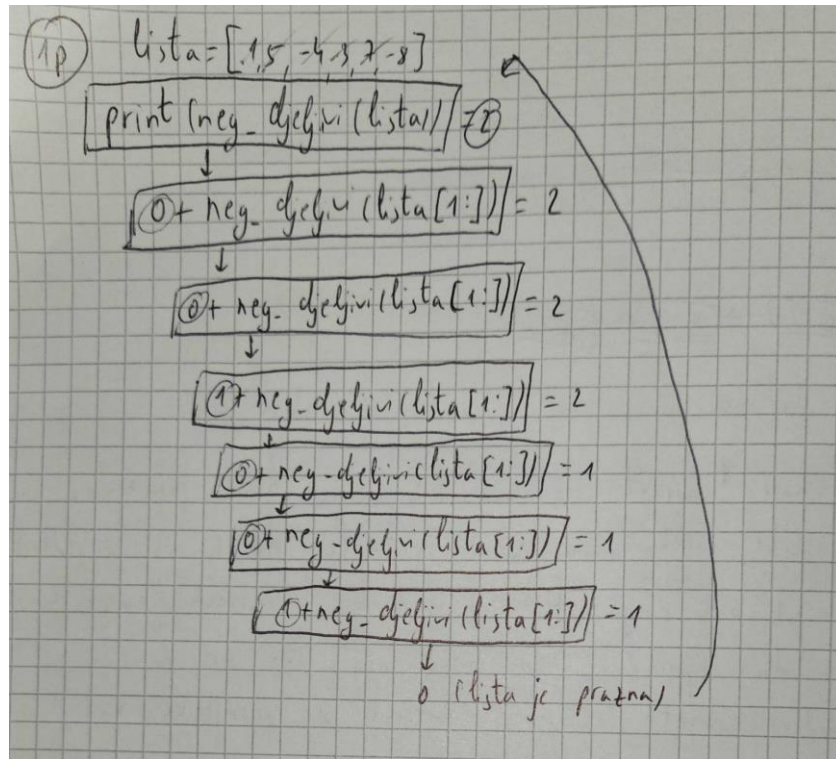 1p lista=[1,5,-4,3,7,-8]
print(neg_djeljivi(lista)) =2
0+ neg_djeljivi(lista[1:]) = 2
0+ neg_djeljivi(lista[1:]) = 2
1+ neg_djeljivi(lista[1:]) = 2
0+ neg_djeljivi(lista[1:]) = 1
0+ neg_djeljivi(lista[1:]) = 1
1+neg_djeljivi(lista[1:]) = 1
0 (lista je prazna)